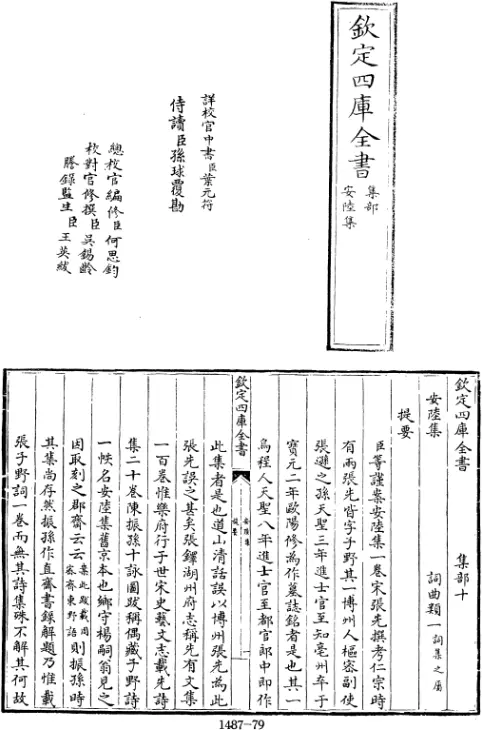 欽定四庫全書
集部
安陸集
詳校官中書臣葉元符
侍讀臣孫球覆勘
總校官編修臣何思鈞
校對官修撰臣吳錫齡
謄錄監生臣王英紱
欽定四庫全書
集部十
安陸集
詞曲類一詞集之屬
提要
臣等謹案安陸集一卷宋張先撰考仁宗時
有兩張先皆字子野其一博州人樞密副使
張遜之孫天聖三年進士官至知亳州卒于
寶元二年歐陽修為作墓誌銘者是也其一
烏程人天聖八年進士官至都官郎中即作
欽定四庫全書
安陸集
提要
一
此集者是也道山清話誤以博州張先為此
張先誤之甚矣張鐸湖州府志稱先有文集
一百卷惟樂府行于世宋史藝文志載先詩
集二十卷陳振孫十詠圖跋稱偶藏子野詩
一帙名安陸集舊京本也鄉守楊嗣翁見之
因取刻之郡齋云云案此跋載周密齊東野語則振孫時
其集尚存然振孫作直齋書錄解題乃惟載
張子野詞一卷而無其詩集殊不解其何故
1487-79